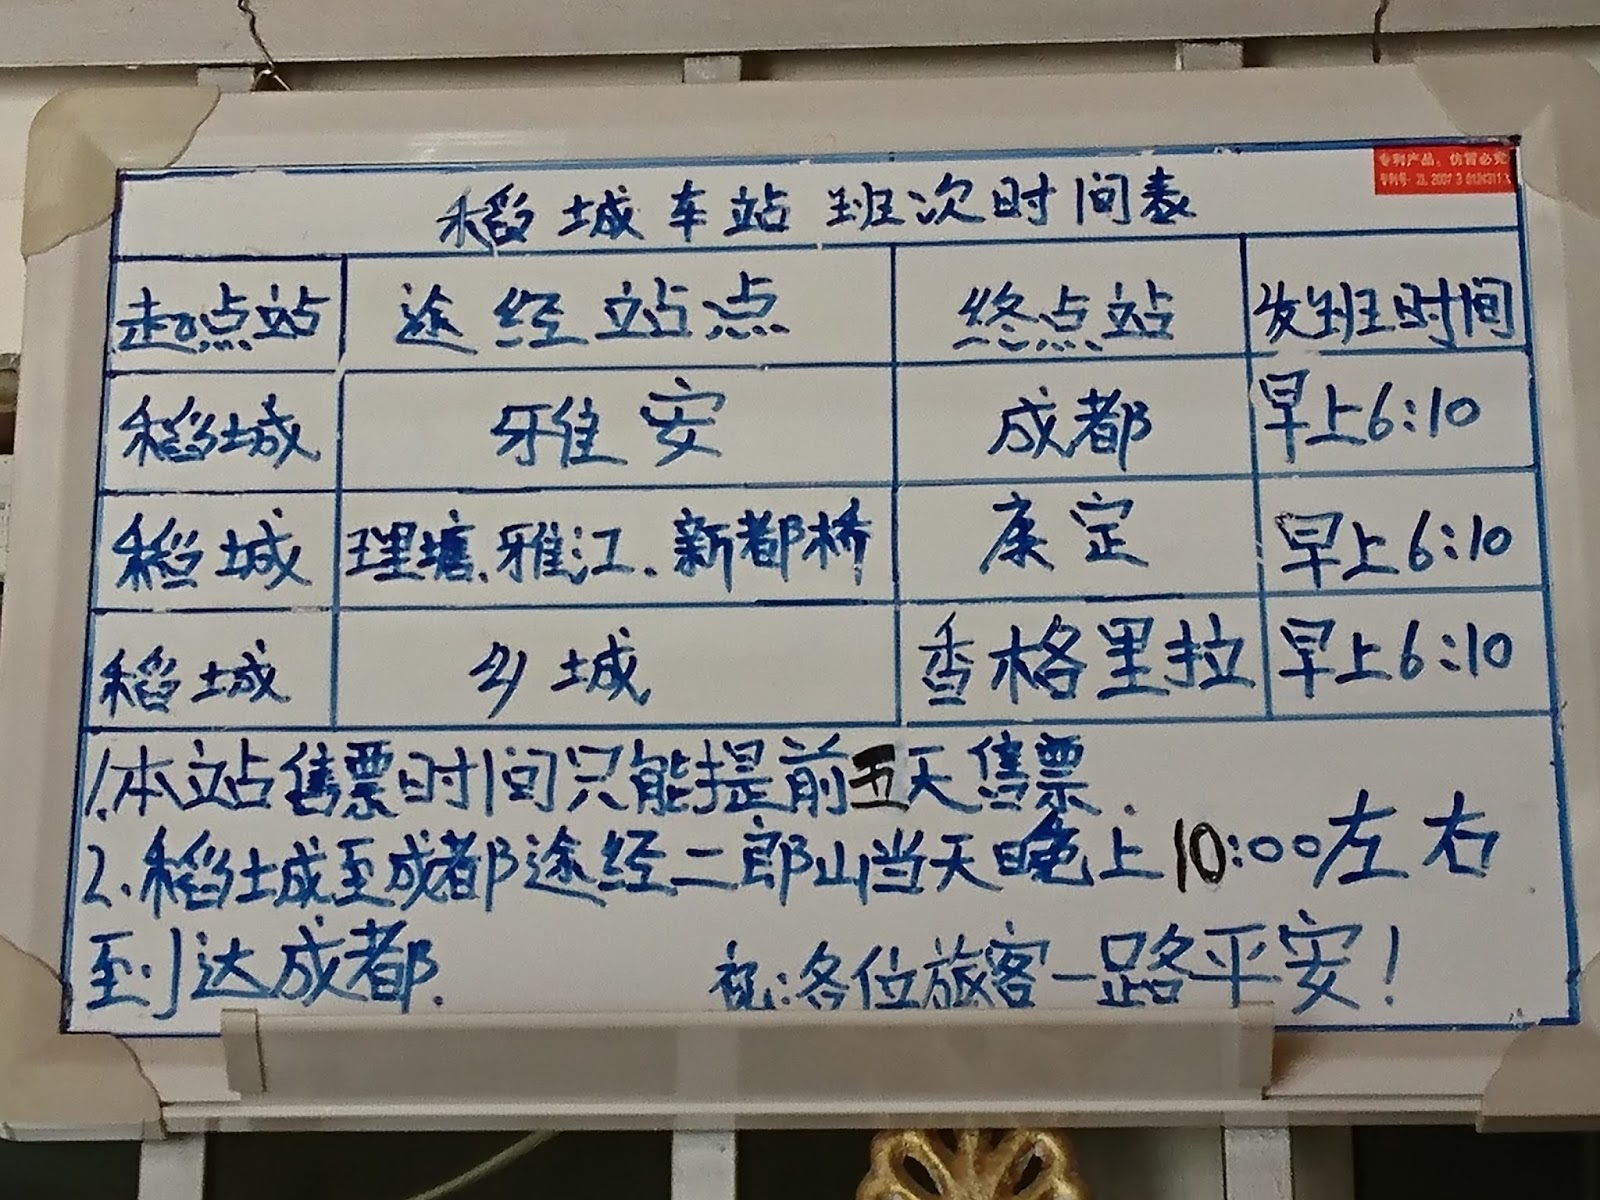 专利产品，仿冒必究
专利号：ZL 2007 3 0124311.X
稻城车站班次时间表
起点站 途经站点 终点站 发班时间
稻城 雅安 成都 早上6:10
稻城 理塘、雅江、新都桥 康定 早上6:10
稻城 乡城 香格里拉 早上6:10
1.本站售票时间只能提前五天售票.
2.稻城至成都途经二郎山当天晚上10:00左右
到达成都. 祝:各位旅客一路平安!